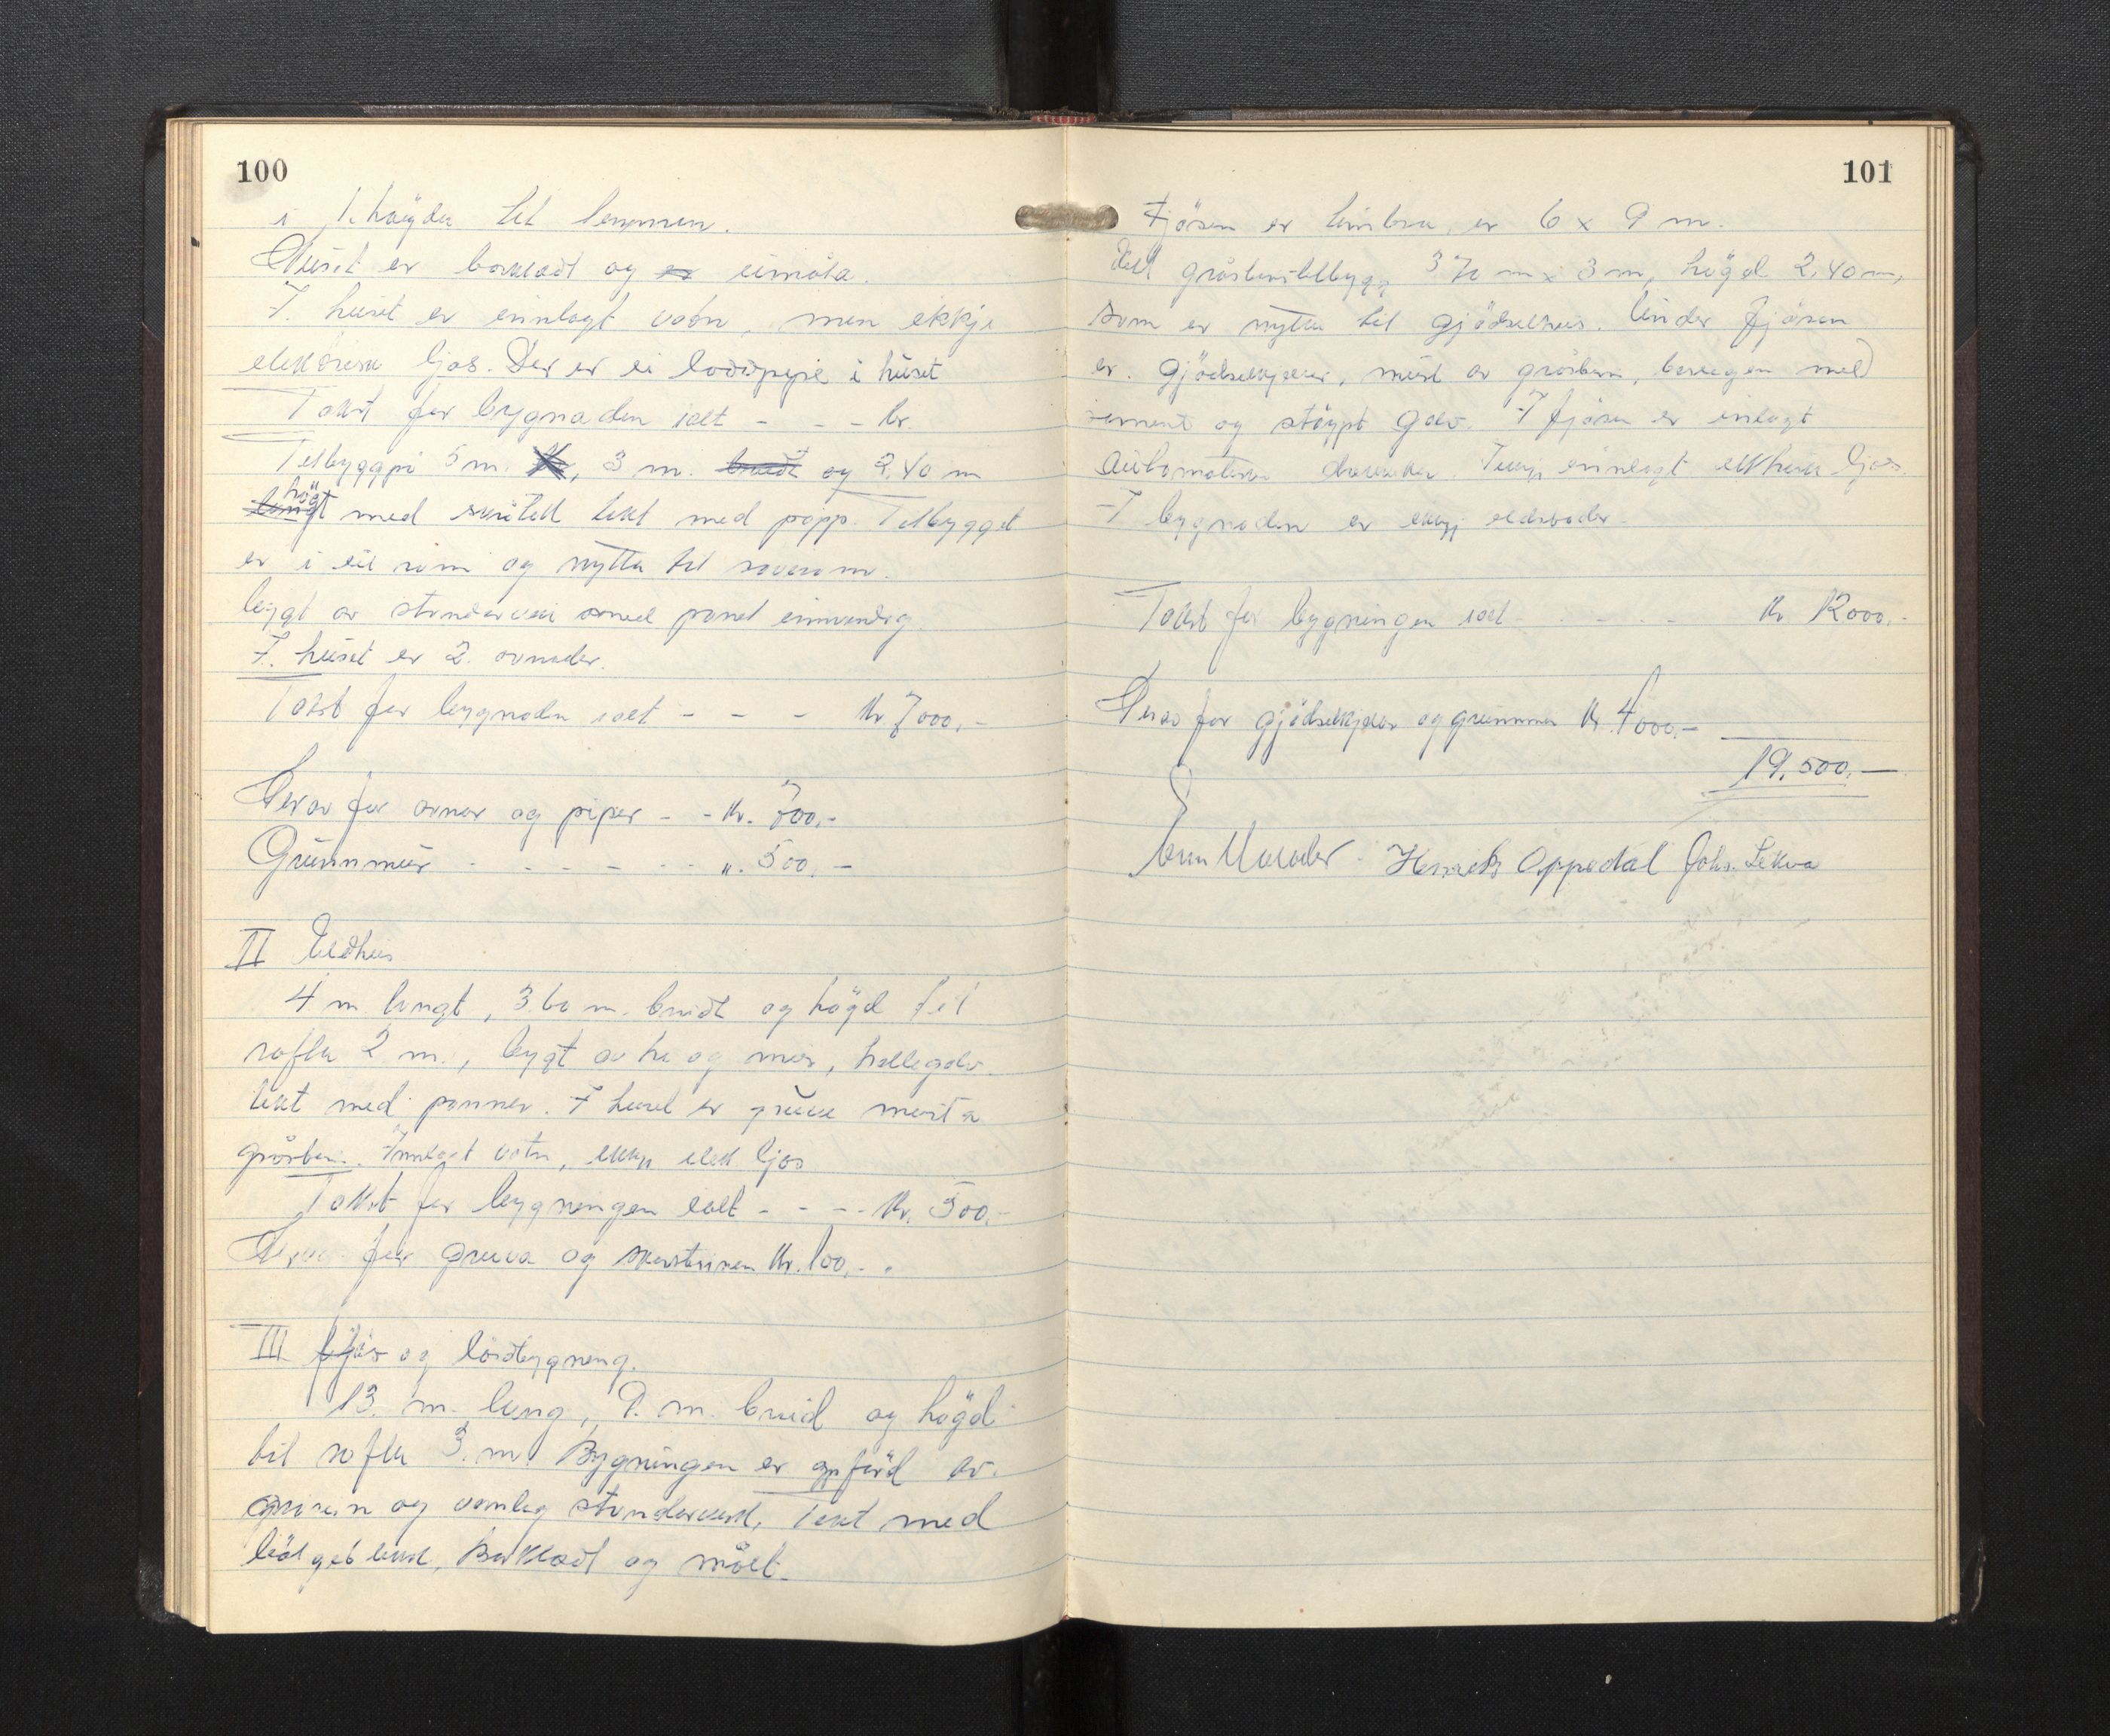 100
i 1. høgda til lemmen.
Huset er borklædt og er umåla.
I. huset er innlagt vatn, men ikkje
elektrisk ljos. Der er ei loddpipe i huset
Takst for bygnaden ialt - - - kr.
Tilbyggpå 5 m. 3 m. breidt og 2,40 m
langt høgt med skutekt tekt med papp. Tilbygget
er i eit rom og nytta til soverom.
bygt av stenderverk med panel innvendig
I. huset er 2. ovnader.
Takst for bygnaden ialt - - - Kr. 7000,-
Derav for ovner og piper - - Kr. 700,-
Grunnmur - - - - - - ". 500,-
II Eldhus
4 m. langt, 3.60 m. breidt og høgd til
rafta 2 m., bygt av tre og mur, hellegolv.
tekt med panner. I huset er gruve murt a
gråstein. Innlagt vatn, ikkje elek ljos
Takst for bygningen ialt - - - - Kr. 500,-
Derav for gruva og skorsteinen Kr. 100,-.
III Fjøs og løebygning.
13. m. lang, 9. m. breid og høgd
til rafta 3. m. Bygningen er oppførd av.
gråstein og vanleg stenderverk, Tekt med
bølgeblekk, Borklædt og målt.
101
Fjøsen er timbra, er 6 x 9 m.
Itill gråsteinstilbygg 3,70 m x 3 m, høgd 2,40 m,
som er nytta til gjødselhus. Under fjøsen
er. gjødselkjeller, murt av gråstein, beslegen med
sement og støypt golv. I fjøsen er inlagt
automatiske drikkekar. Ikkje innlagt elektrisk ljos.
I bygnaden er ikkje eldsteder.
Takst for bygningen ialt - - - - - Kr 12000,-
Derav for gjødselkjeller og grunnmur Kr. 4000,-
19,500,-
Henrik Oppedal Johs. Lekva